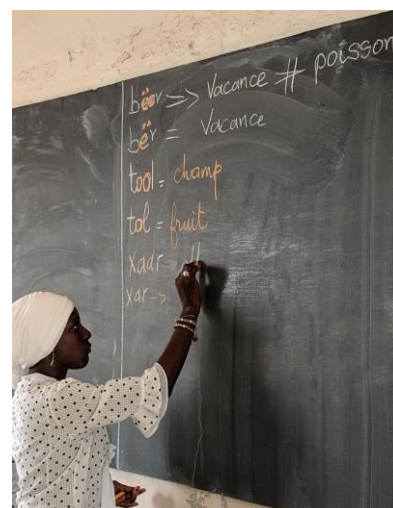 bëër => Vacance # poisson
bër = Vacance
tool = champ
tol = fruit
xaar ->
xar ->